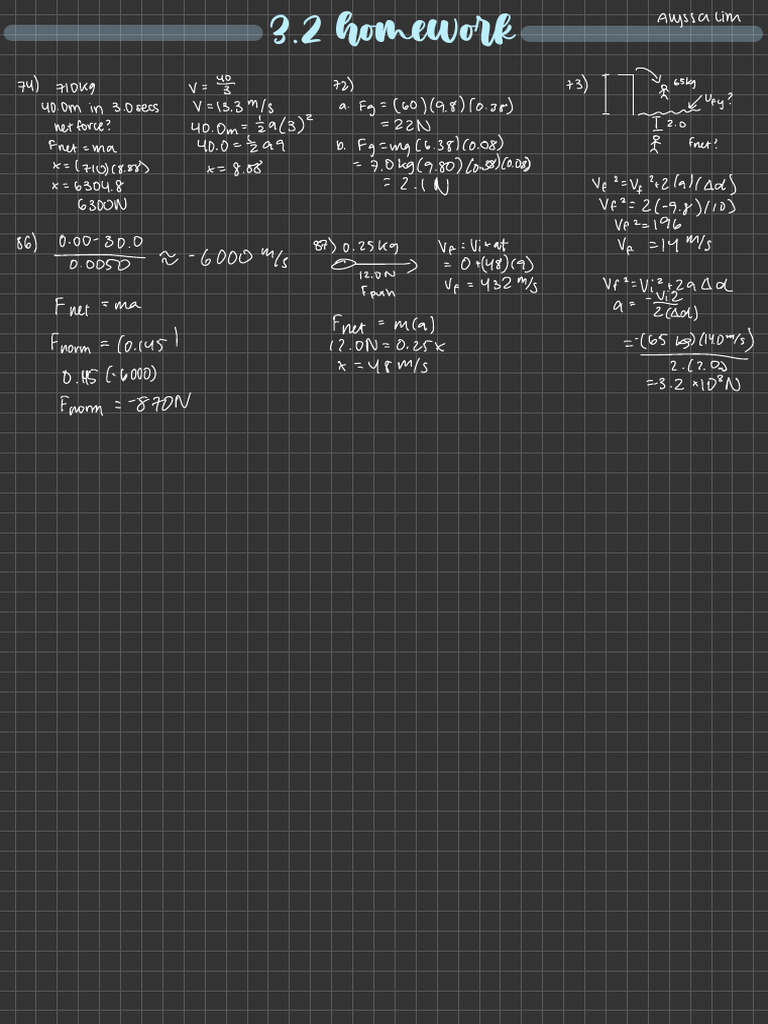 3.2 homework
Alyssa Lim
74) 710kg
40.0m in 3.0secs
net force?
Fnet = ma
x = (710)(8.88)
x = 6304.8
6300N
V = 40/3
V = 13.3 m/s
40.0m = 1/2 a(3)²
40.0 = 1/2 a9
x = 8.88
72)
a. Fg = (60)(9.8)(0.38)
= 22N
b. Fg = mg(6.38)(0.08)
= 7.0kg(9.80)(0.38)(0.08)
= 2.1 N
73)
65kg
Vfy?
2.0
Fnet?
Vf² = Vf² + 2(a)(Δd)
Vf² = 2(-9.8)(10)
Vf² = 196
Vf = 14 m/s
Vf² = Vi² + 2aΔd
a = -Vi2/2(Δd)
= -(65 kg)(14.0m/s)/2.(2.0)
= -3.2 × 10³N
86) 0.00-30.0/0.0050 ≈ -6000 m/s
Fnet = ma
Fnorm = (0.145)
0.145 (-6000)
Fnorm = -870N
87) 0.25kg
12.0N
Fpush
Fnet = m(a)
12.0N = 0.25x
x = 48 m/s
Vf = Vi + at
= 0+(48)(9)
Vf = 432 m/s